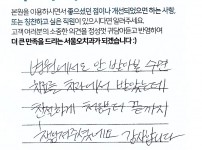 본원을 이용하시면서 좋으셨던 점이나 개선되었으면 하는 사항,
또는 칭찬하고 싶은 직원이 있으시다면 일러주세요.
고객 여러분의 소중한 의견을 정성껏 귀담아듣고 반영하여
더 큰 만족을 드리는 서울오치과가 되겠습니다:)
병원에서도 안 받아본 수면
치료를 치과에서 받았는데
친절하게 처음부터 끝까지
해주셨어요 감사합니다